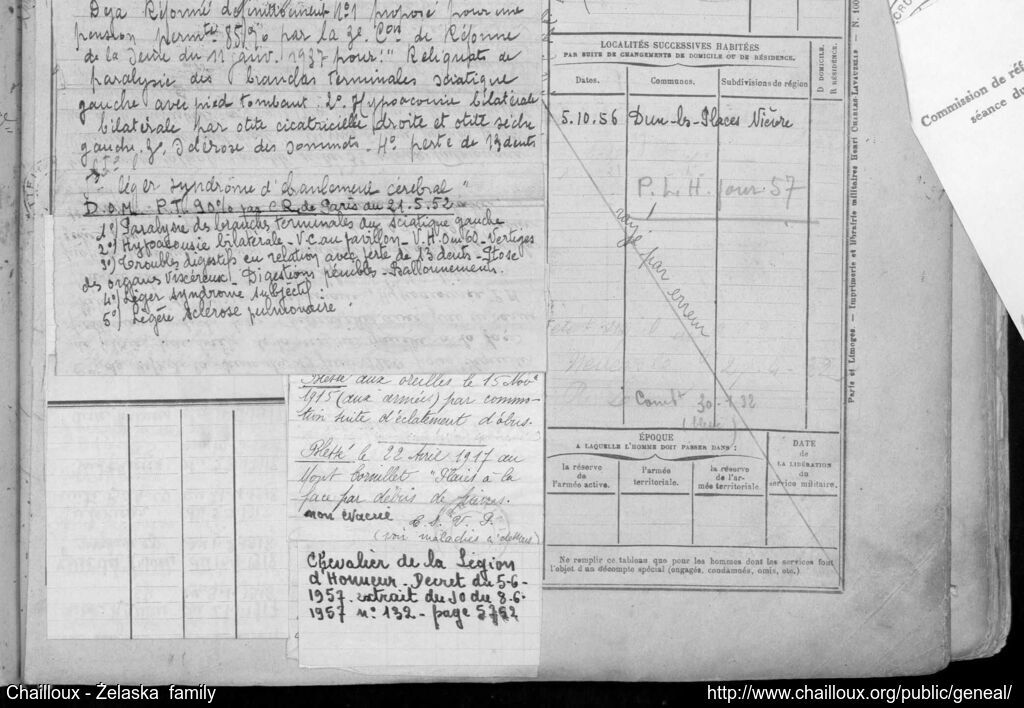 Deja Réformé définitivement N°1 proposé pour une
pension permte 85 % par la 3e Con de Réforme
de la Seine du 11 janv. 1937 pour : " Reliquats de
paralysie des branches terminales sciatique
gauche avec pied tombant : 2° Hypoacousie bilatérale
bilatérale par otite cicatricielle droite et otite sèche
gauche. 3. Sclérose des sommets. 4° perte de 13 dents
léger syndrome d'ébranlement cérébral "
D.O.M. P.T. 90% par C.R. de Paris du 21.5.52
1°) Paralysie des branches terminales du sciatique gauche
2°) Hypoacousie bilaterale - V.C. au pavillon - V.H. 0m60 - Vertiges
3°) Troubles digestifs en relation avec perte de 13 dents - Ptose
des organes viscéreux - Digestions pénibles - Ballonnements.
4°) Léger syndrome subjectif.
5°) Légère sclérose pulmonaire
Blessé aux oreilles le 15 Nove
1915 (aux armées) par commo-
tion suite d'éclatement d'obus.
Blessé le 22 Avril 1917 au
Mont Cornillet "Plaies à la
face par débris de pierres.
non évacué
C. S. V. P.
(voir maladies ci dessus)
Chevalier de la Légion
d'Honneur. Decret du 5-6-
1957. extrait du JO du 8-6-
1957 n° 132 - page 5752
LOCALITÉS SUCCESSIVES HABITÉES
PAR SUITE DE CHANGEMENTS DE DOMICILE OU DE RÉSIDENCE.
Dates.
Communes.
Subdivisions de région
D DOMICILE.
R RÉSIDENCE.
5.10.56 Dun-les-Places Nièvre
P. L. H. Jour 57
rayé par erreur
ÉPOQUE
A LAQUELLE L'HOMME DOIT PASSER DANS :
la réserve
de l'armée active.
l'armée
territoriale.
la réserve
de l'ar-
mée territoriale.
DATE
de
LA LIBÉRATION
du
service militaire.
Ne remplir ce tableau que pour les hommes dont les services font
l'objet d'un décompte spécial (engagés, condamnés, omis, etc.).
Paris et Limoges. — Imprimerie et librairie militaires Henri CHARLES-LAVAUZELLE — N. 100
Commission de réf
séance du
Chailloux - Żelaska family
http://www.chailloux.org/public/geneal/